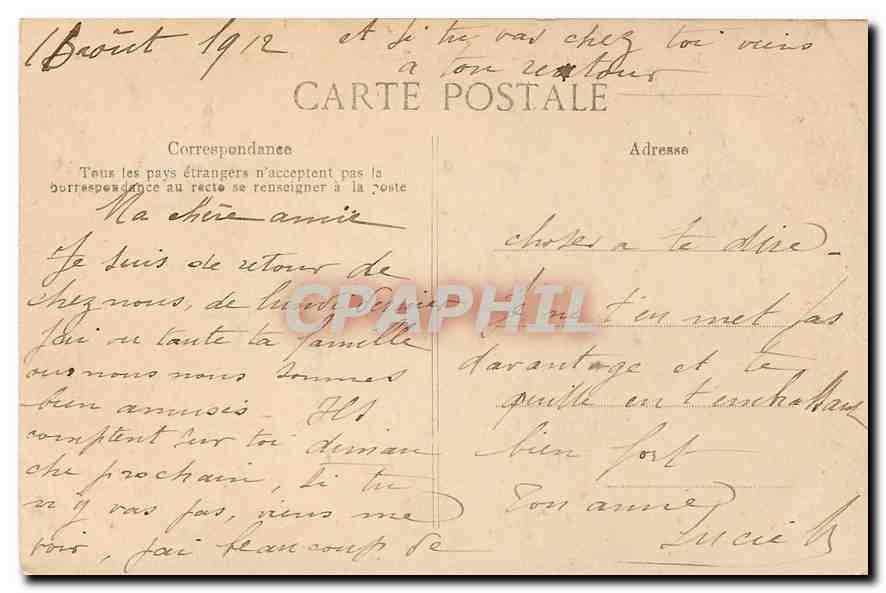 août 1912 et si tu vas chez toi viens
à ton retour
CARTE POSTALE
Correspondance
Tous les pays étrangers n'acceptent pas la
correspondance au recto se renseigner à la poste
Adresse
Ma chère amie
Je suis de retour de
chez nous, de lundi dernier
J'ai vu toute ta famille
nous nous sommes
bien amusés Ils
comptent sur toi diman
che prochain, si tu
n'y vas pas, viens me
voir, j'ai beaucoup de
choses a te dire
Je ne t'en met pas
davantage et te
quitte en t'embrassant
bien fort
Ton amie
Lucie
CPAPHIL